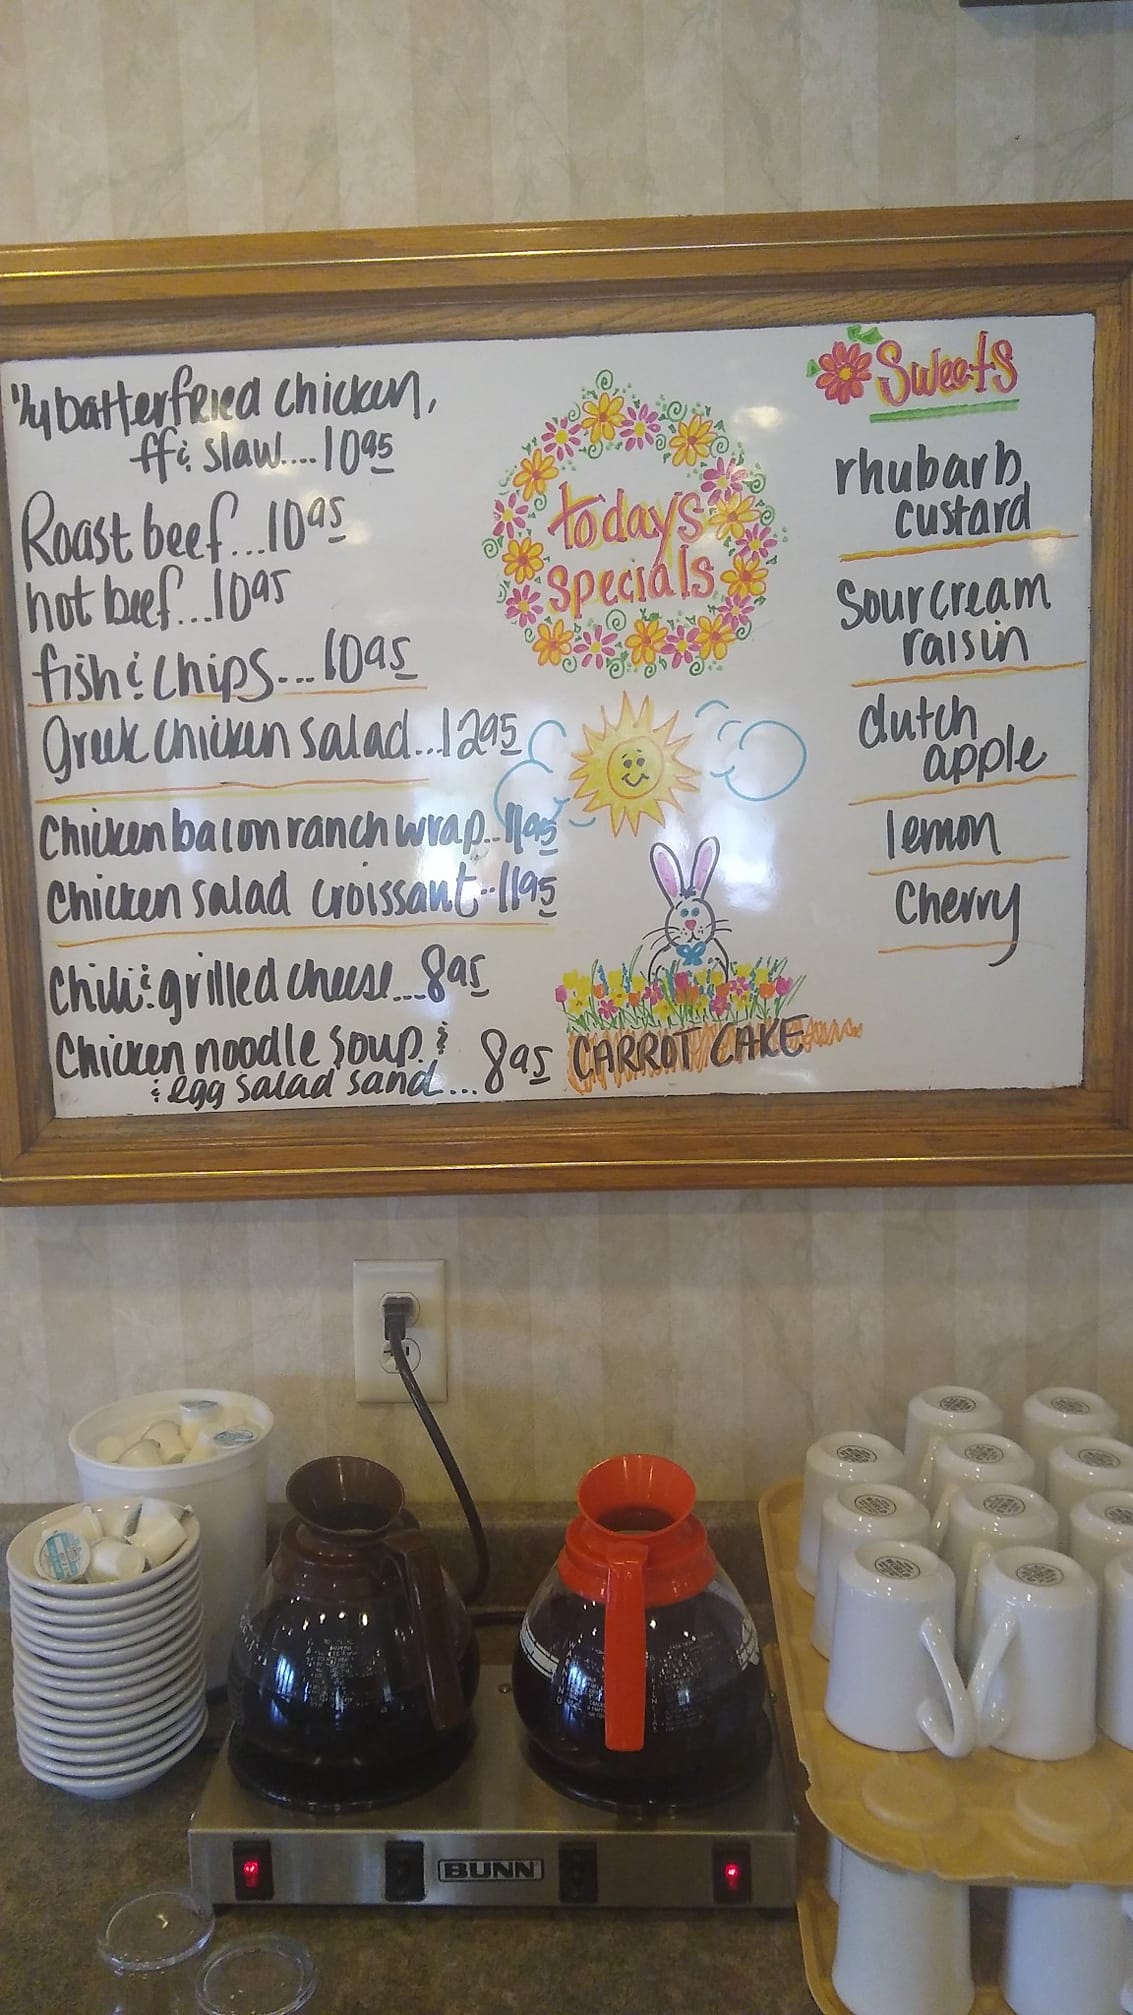 1/4 batterfried chicken,
ff & slaw....10 95
Roast beef...10 95
hot beef...10 95
fish & chips...10 95
Greek chicken salad...12 95
Chicken bacon ranch wrap...11 95
Chicken salad croissant...11 95
Chili & grilled cheese...8 95
Chicken noodle soup &
& egg salad sand...8 95
todays
specials
CARROT CAKE
Sweets
rhubarb
custard
Sour cream
raisin
dutch
apple
lemon
Cherry
BUNN